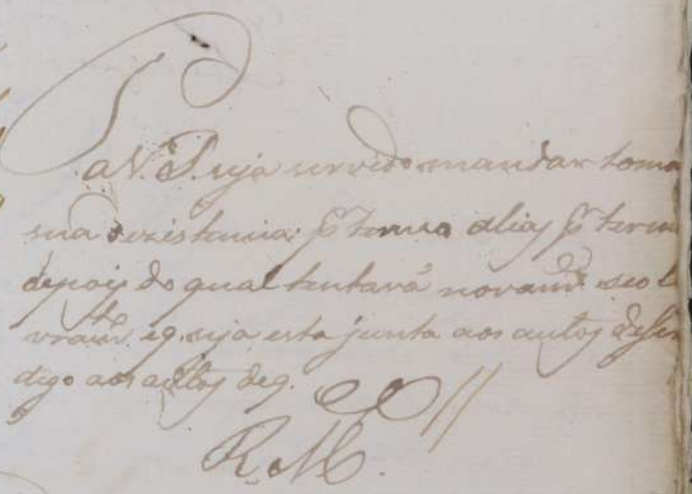 P
a V. S. seja servido mandar toma
sua dezistencia pr termo alias pr term
depois do qual tentará novamte seo l
vramto. e q. seja esta junta aos autos
digo aos autos de q.
E R M.